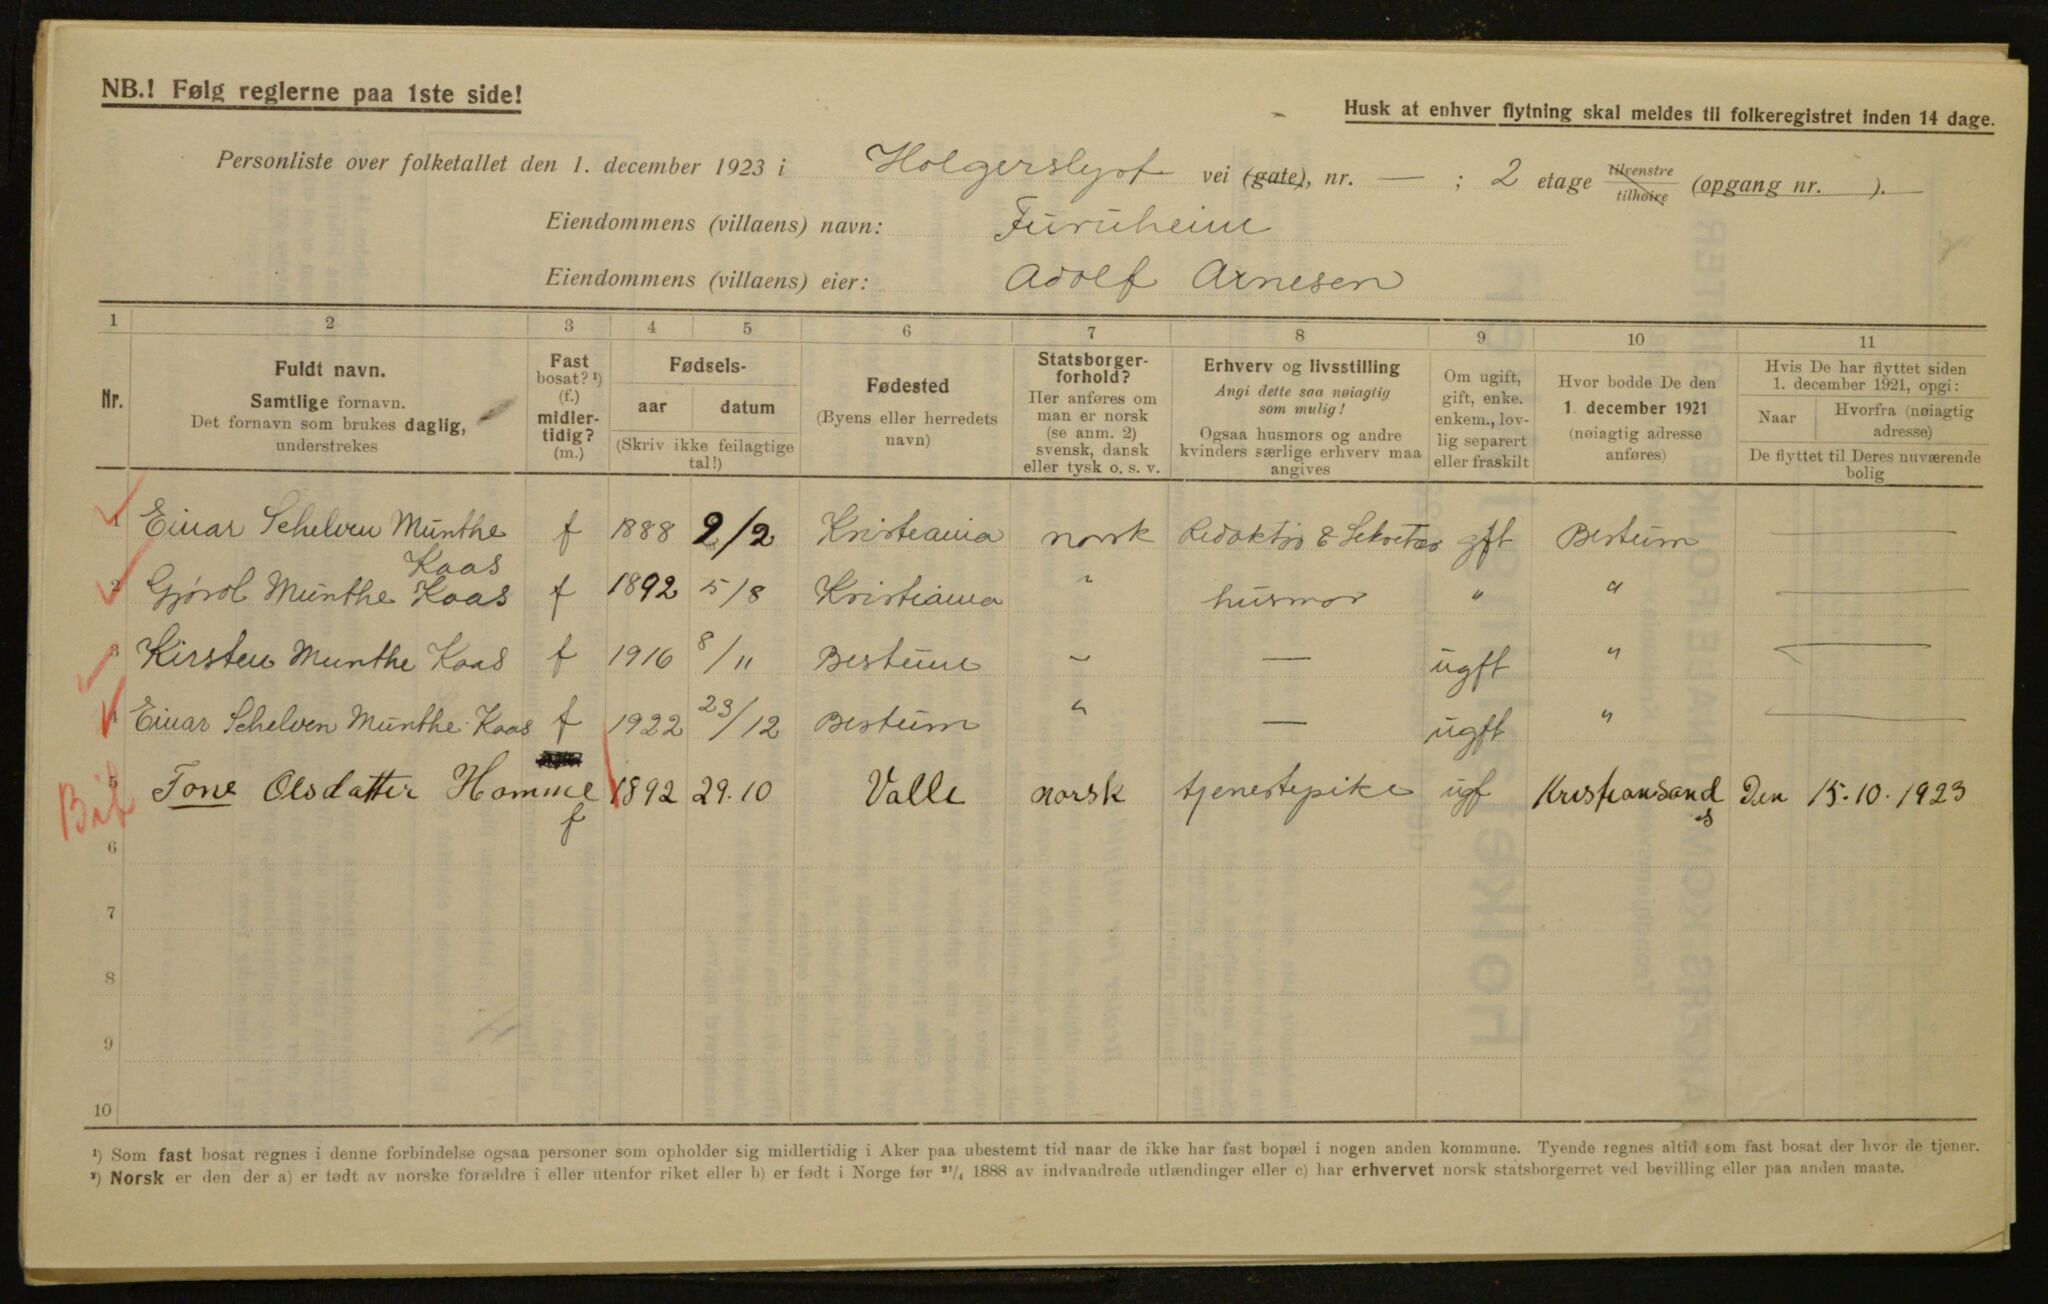 NB.! Følg reglerne paa 1ste side!
Husk at enhver flytning skal meldes til folkeregistret inden 14 dage.
Personliste over folketallet den 1. december 1923 i Holgerslyst vei (gate), nr. — ; 2 etage tilvenstre tilhøire (opgang nr. ).
Eiendommens (villaens) navn: Furuheim
Eiendommens (villaens) eier: Adolf Arnesen
1 2 3 4 5 6 7 8 9 10 11
Nr.
Fuldt navn.
Samtlige fornavn.
Det fornavn som brukes daglig,
understrekes
Fast
bosat? ¹)
(f.)
midler-
tidig?
(m.)
Fødsels-
aar datum
(Skriv ikke feilagtige
tal!)
Fødested
(Byens eller herredets
navn)
Statsborger-
forhold?
Her anføres om
man er norsk
(se anm. 2)
svensk, dansk
eller tysk o. s. v.
Erhverv og livsstilling
Angi dette saa nøiagtig
som mulig!
Ogsaa husmors og andre
kvinders særlige erhverv maa
angives
Om ugift,
gift, enke.
enkem., lov-
lig separert
eller fraskilt
Hvor bodde De den
1. december 1921
(nøiagtig adresse
anføres)
Hvis De har flyttet siden
1. december 1921, opgi:
Naar Hvorfra (nøiagtig
adresse)
De flyttet til Deres nuværende
bolig
1 Einar Schelven Munthe f 1888 9/2 Kristiania norsk Redaktør & Sekretær gft Bestum —
Kaas
2 Gjørol Munthe Kaas f 1892 5/8 Kristiania " husmor " " —
3 Kirsten Munthe Kaas f 1916 8/11 Bestum " — ugft " —
4 Einar Schelven Munthe-Kaas f 1922 23/12 Bestum " — ugft " —
5 Tone Olsdatter Homme 1892 29.10 Valle norsk tjenestepike ugf Kristiansand Den 15.10.1923
f s
6
7
8
9
10
¹) Som fast bosat regnes i denne forbindelse ogsaa personer som opholder sig midlertidig i Aker paa ubestemt tid naar de ikke har fast bopæl i nogen anden kommune. Tyende regnes altid som fast bosat der hvor de tjener.
²) Norsk er den der a) er født av norske forældre i eller utenfor riket eller b) er født i Norge før ²¹/₄ 1888 av indvandrede utlændinger eller c) har erhvervet norsk statsborgerret ved bevilling eller paa anden maate.